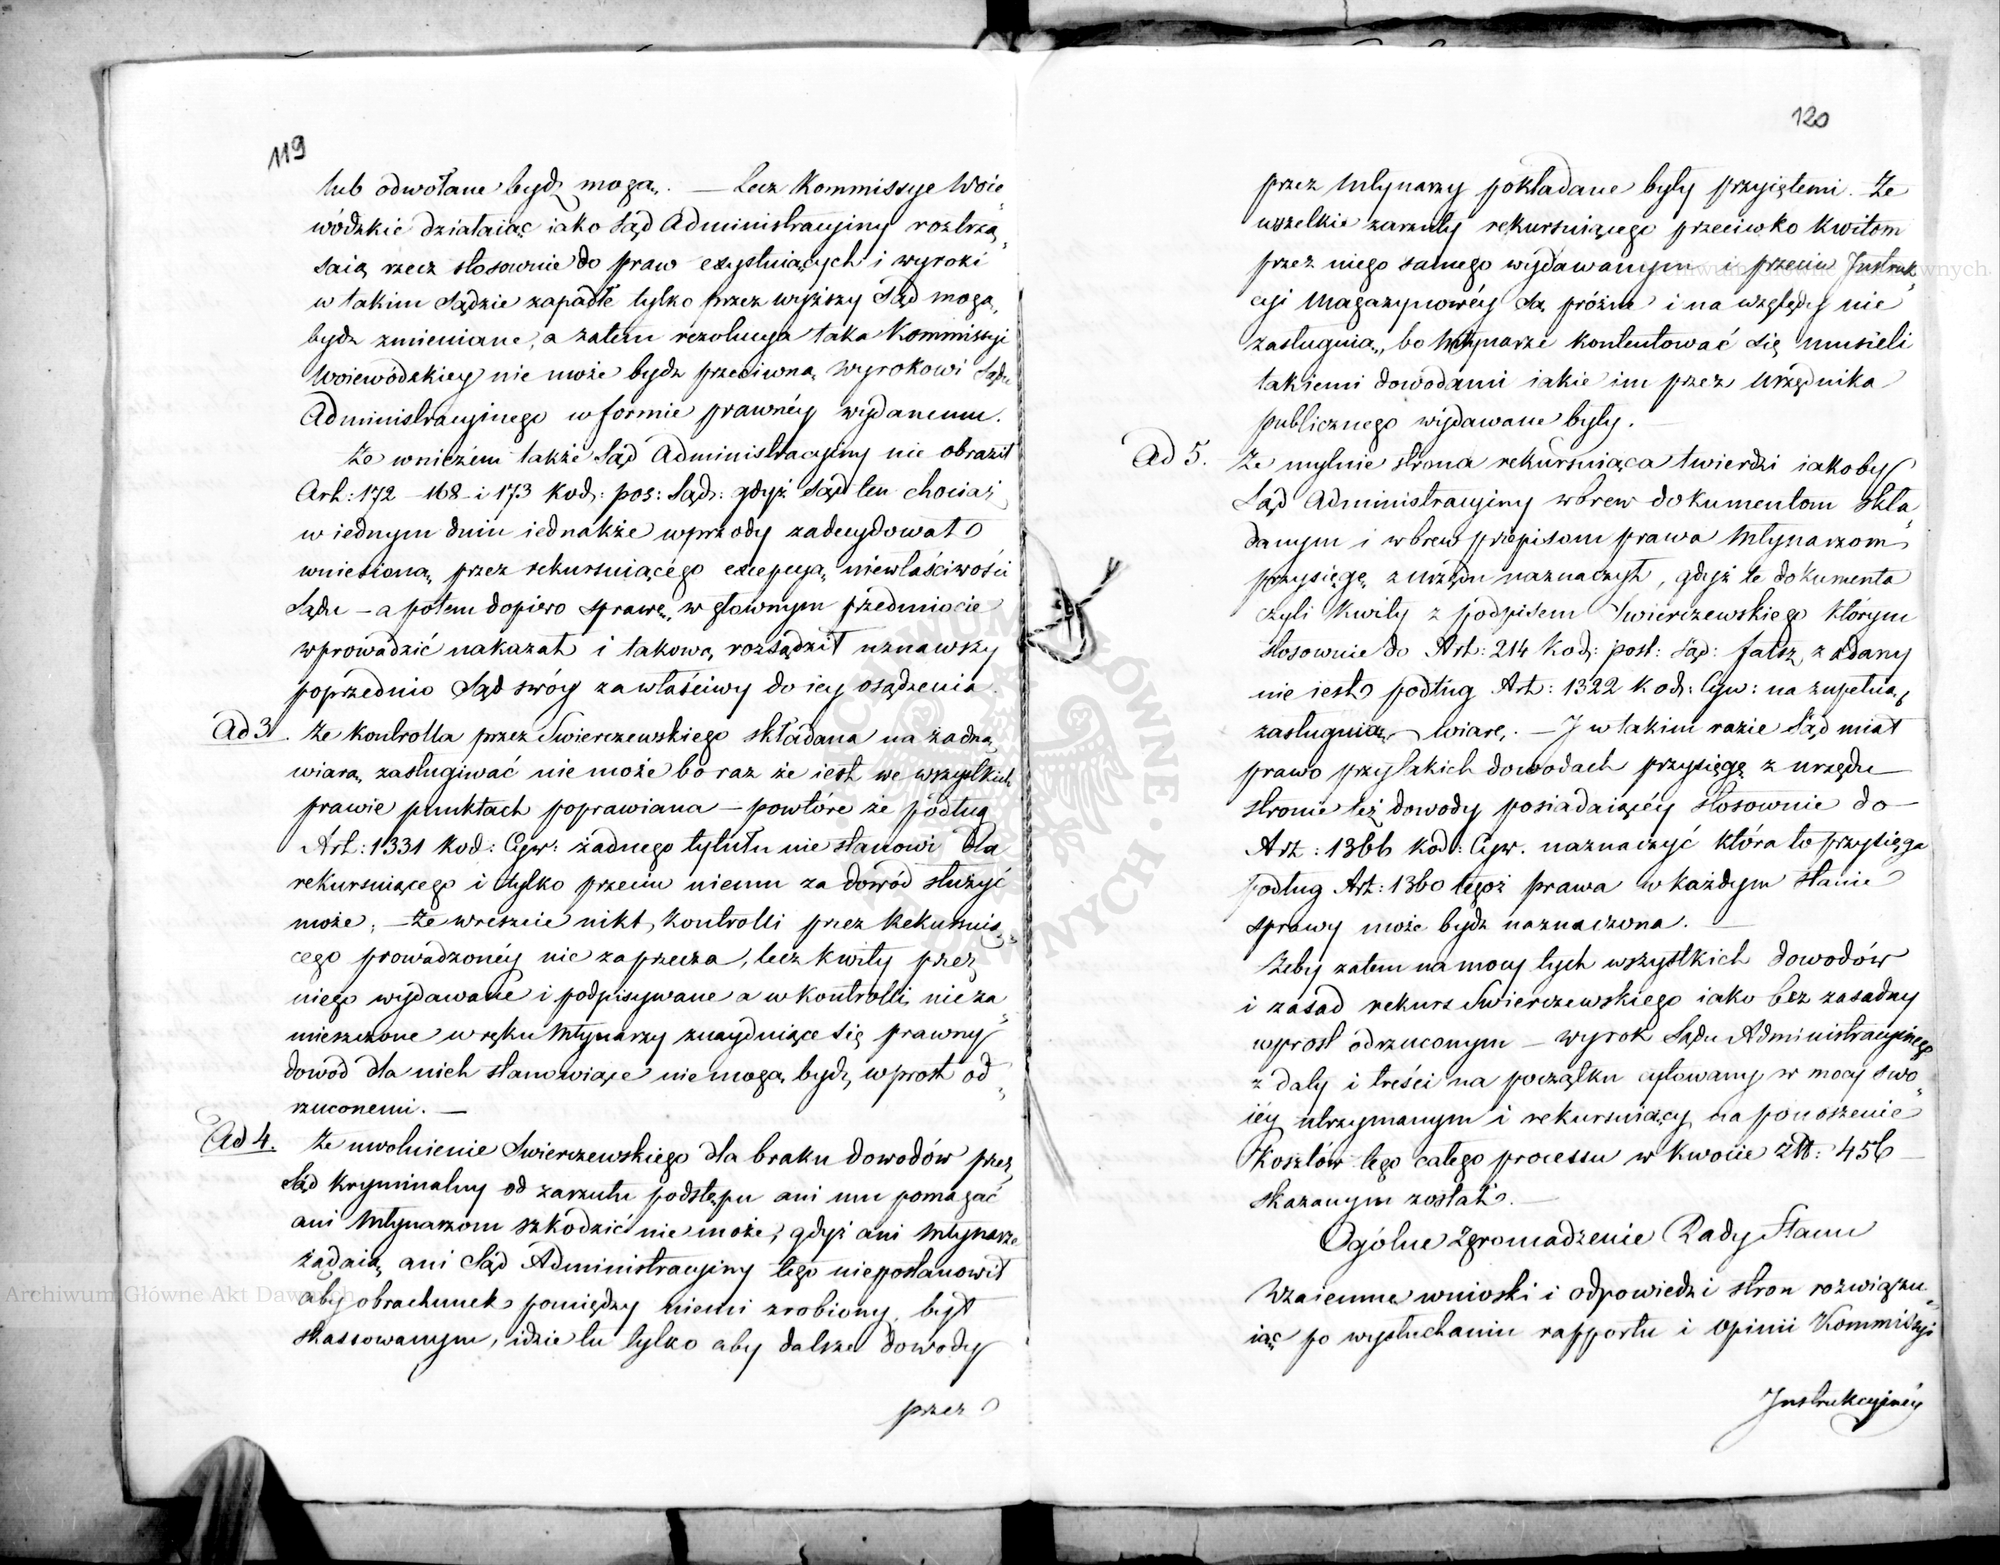 119
lub odwołane bydź mogą. — Lecz Kommissye Woie„
wódzkie działaiąc iako Sąd Administracyiny roztrzą„
saią rzecz stosownie do praw exystuiących i wyroki
w takim Sądzie zapadłe tylko przez wyższy Sąd mogą
bydź zmieniane, a zatem rezolucya taka Kommissyi
Woiewodzkiey nie może bydź przeciwną wyrokowi Sądu
Administracyinego w formie prawnéy wydanemu.
Że wniczém także Sąd Administracyiny nie obraził
Art: 172 – 168 – i 173 kod: pos: Sąd: gdyż Sąd ten chociaż
w iednym dniu iednakże wprzody zadecydował
wniesioną przez rekursuiącego excepcyą niewłaściwości
Sądu – a potem dopiero sprawę w głownym przedmiocie
wprowadzić nakazał i takową rozsądził uznawszy
poprzednio Sąd swóy za właściwy do iey osądzenia.
Ad 3. Że kontrolla przez Swierczewskiego składana na żadną
wiarą zasługiwać nie może bo raz że iest we wszystkich
prawie punktach poprawiana – powtóre że podług
Art: 1331 kod: Cyw: żadnego tytułu nie stanowi dla
rekursuiącego i tylko przeciw niemu za dowód służyć
może, – Że wreszcie nikt kontrolli przez Rekursuią„
cego prowadzonéy nie zaprzecza, lecz kwity przez
niego wydawane i podpisywane a w kontrolli nie za„
mieszczone w ręku Młynarzy znayduiące się prawny
dowod dla nich stanowiące nie mogą bydź wprost od„
rzuconemi. —
Ad 4. Że uwolnienie Swierczewskiego dla braku dowodów przez
Sąd Kryminalny od zarzutu podstępu ani mu pomagać
ani Młynarzom szkodzić nie może, gdyż ani Młynarze
żądaią ani Sąd Administracyiny tego niepostanowił
aby obrachunek pomiędzy niemi zrobiony był
skassowanym, idzie tu tylko aby dalsze dowody
przez
120
przez Młynarzy pokładane były przyiętemi. Że
wszelkie zarzuty rekursuiącego przeciwko kwitom
przez niego samego wydawanym i przeciw Instruk„
cyi Magazynowéy są próżne i na względy nie
zasługuią, bo Młynarze kontentować się musieli
takiemi dowodami iakie im przez Urzędnika
publicznego wydawane były. —
Ad 5. Że mylnie strona rekursuiąca twierdzi iakoby
Sąd Administracyiny wbrew dokumentom skła„
danym i wbrew przepisom prawa Młynarzom
przysięgę z urzędu naznaczył, gdyż te dokumenta
czyli kwity z podpisem Swierczewskiego którym
stosownie do Art: 214 Kod: post: Sąd: fałsz zadany
nie iest podług Art: 1322 kod: Cyw: na zupełną
zasługuią wiarę. — I w takim razie Sąd miał
prawo przy takich dowodach przysięgę z urzędu
stronie też dowody posiadaiącéy stosownie do
Art: 1366 kod: Cyw. naznaczyć która to przysięga
podług Art: 1360 tegoż prawa w każdym stanie
sprawy może bydź naznaczona. —
Żeby zatem na mocy tych wszystkich dowodów
i zasad rekurs Swierczewskiego iako bez zasadny
wprost odrzuconym – wyrok Sądu Administracyinego
z daty i treści na początku cytowany w mocy swo„
iéy utrzymanym i rekursuiący na ponoszenie
Kosztów tego całego processu w kwocie Złt: 456
skazanym został. —
Ogólne Zgromadzenie Rady Stanu
Wzaiemne wnioski i odpowiedzi stron rozwiązu„
iąc po wysłuchaniu rapportu i opinii Kommissyi
Instrukcyinéy